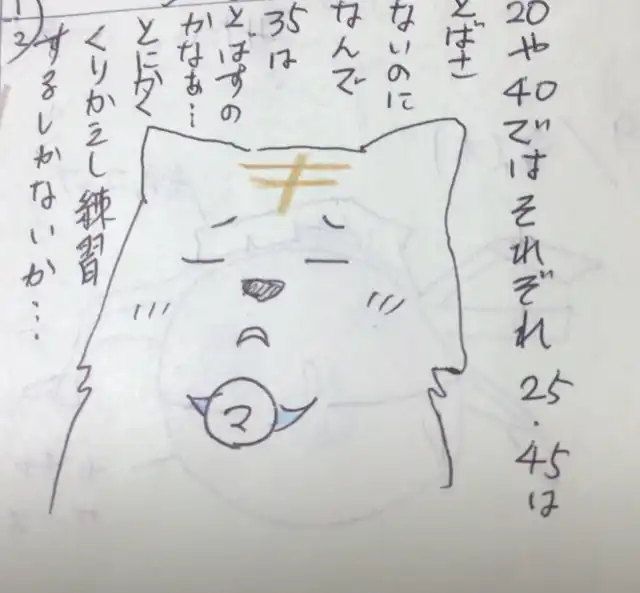 20や40ではそれぞれ25・45は
とばさ
ないのに
なんで
35は
とばすの
かなぁ…
とにかく
くりかえし練習
するしかないか…
マ